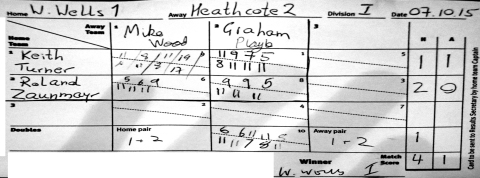 Home W. Wells 1 Away Heathcote 2 Division I Date 07.10.15
Away Team Mike Wood Graham H A
Home Team
Keith Turner 11 9 7 5 1 1
8 11 11 11
Roland Zaunmayr 5 6 9 9 9 5 2 0
11 11 11 11 11 11
3
Doubles Home pair 1 + 2 6 6 11 11 5 Away pair 1 - 2 1
11 11 7 8 11
Winner W. Wells I Match Score 4 1
Card to be sent to Results Secretary by home team Captain